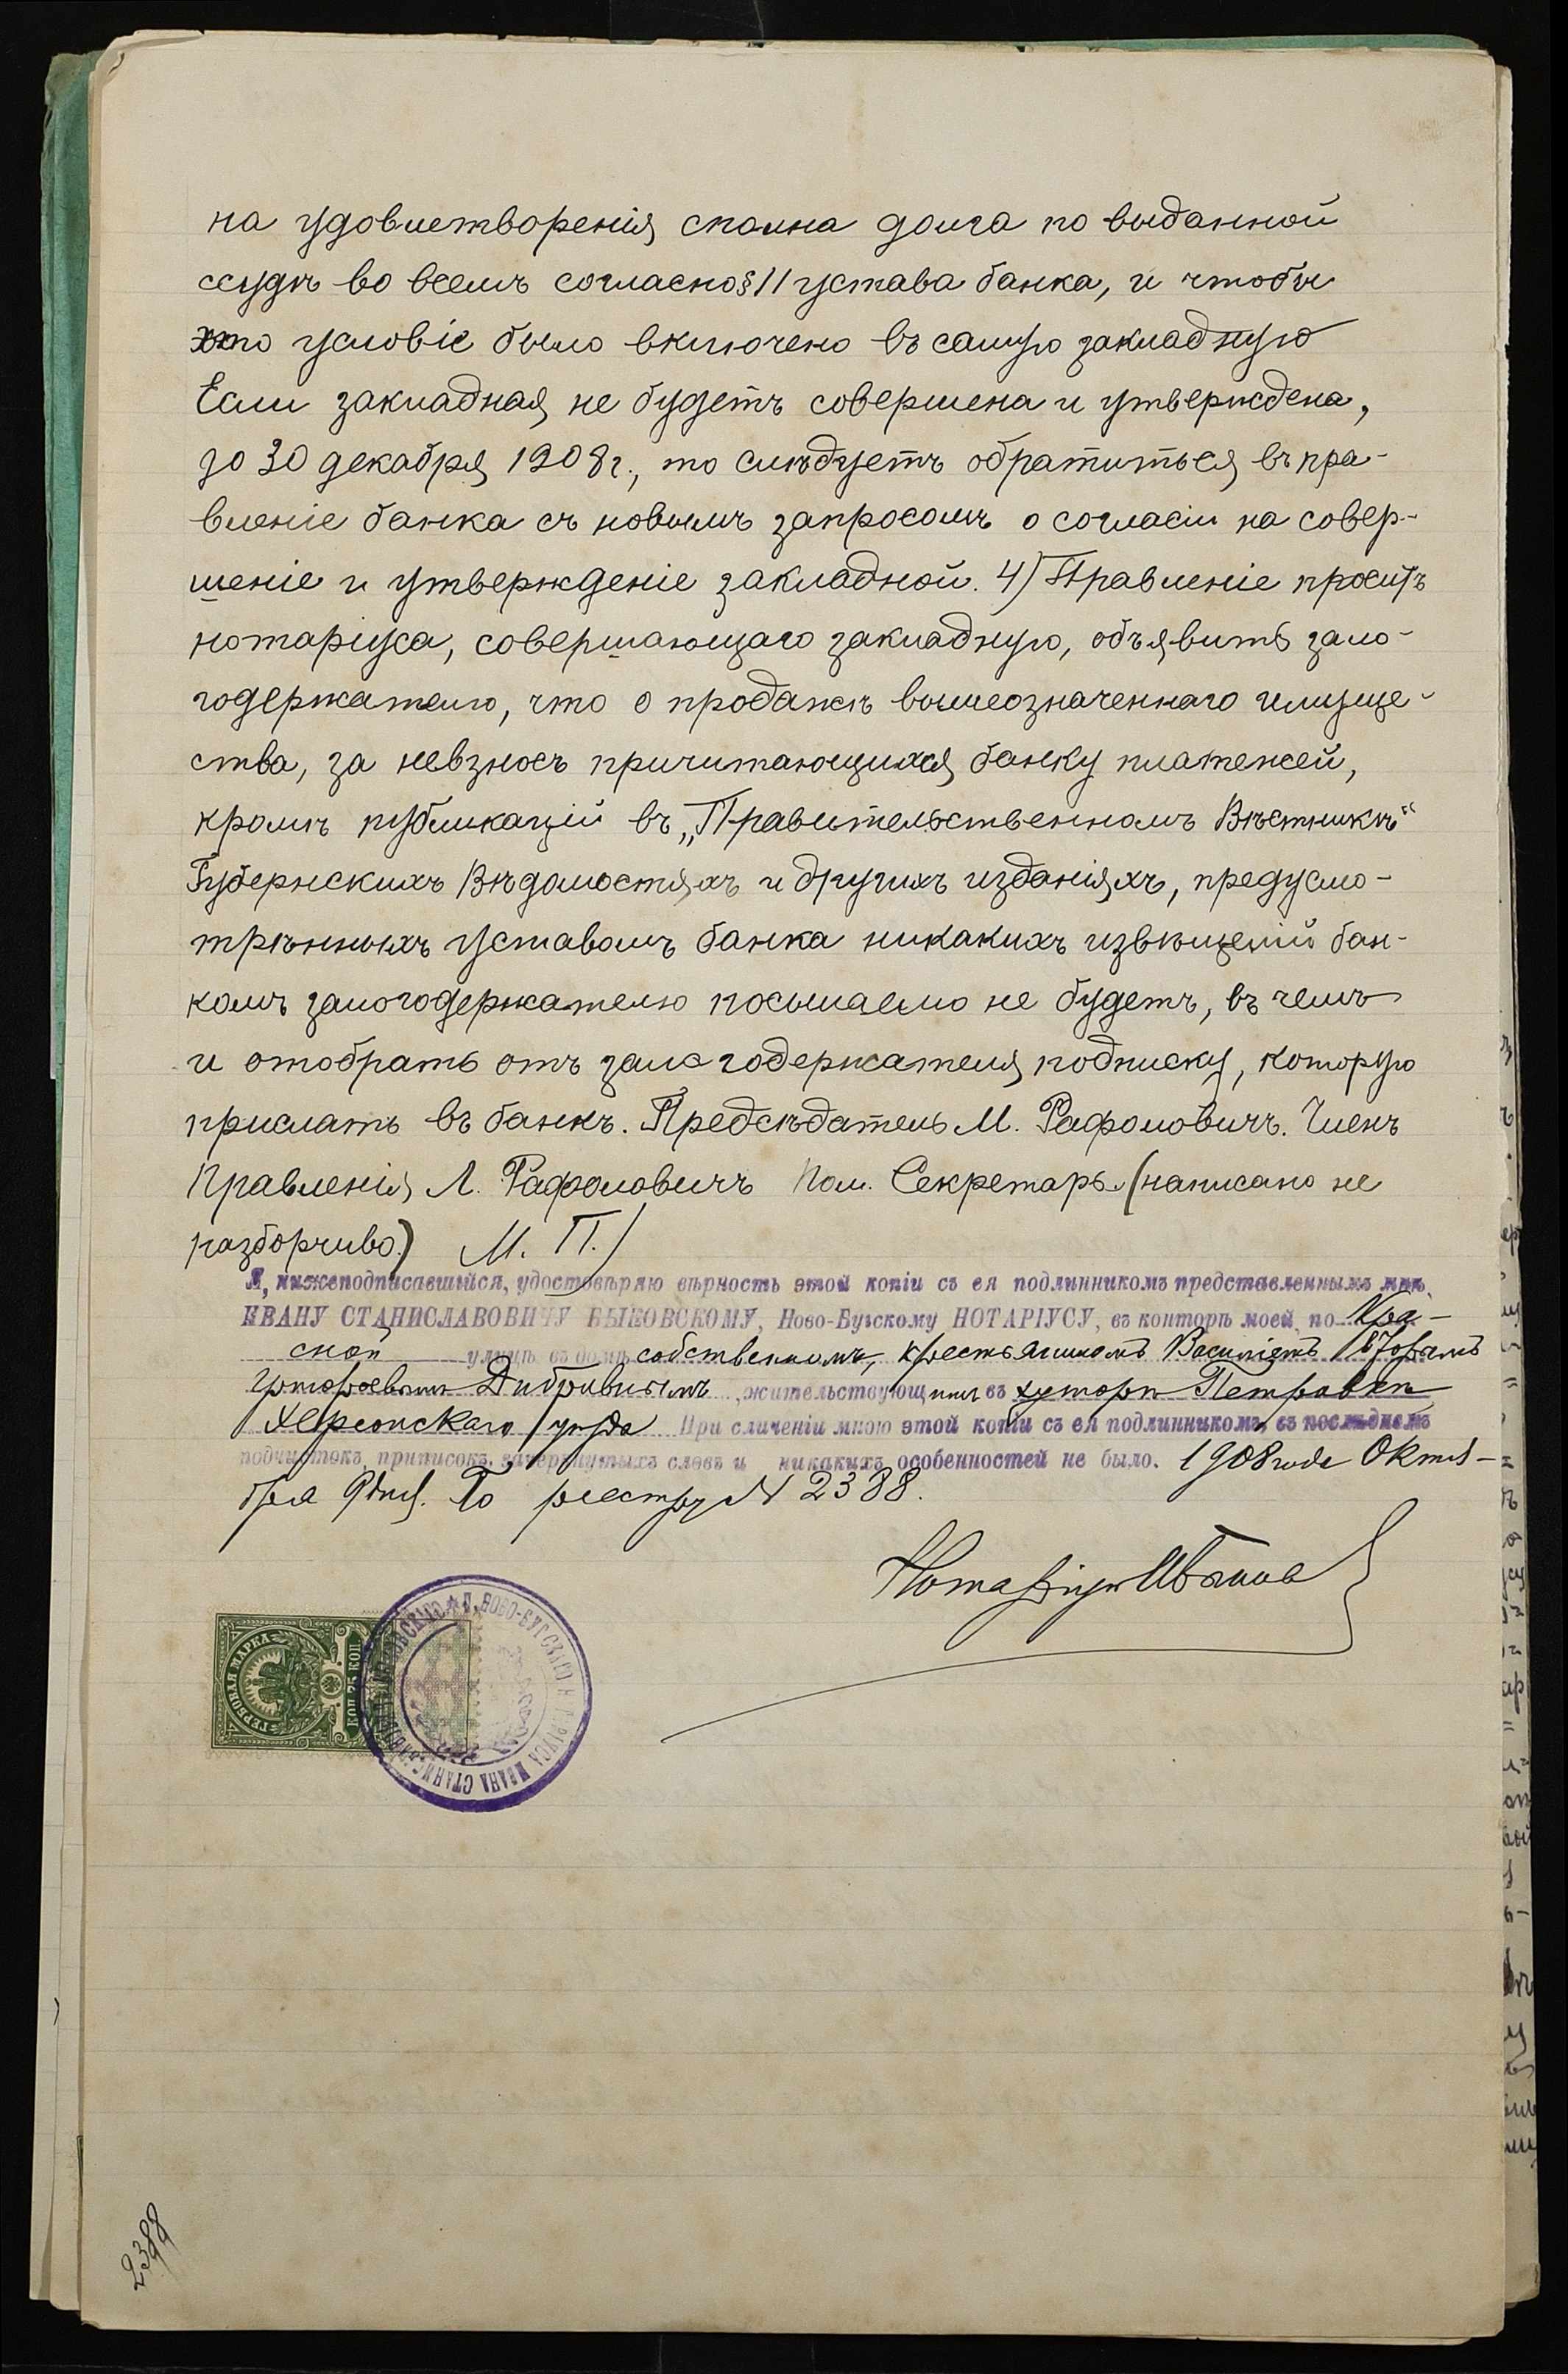 на удовлетворенія сполна долга по выданной
ссудѣ во всемъ согласно § 11 устава банка, и чтобы
это условіе было включено въ самую закладную
Если закладная не будетъ совершена и утверждена,
до 30 декабря 1908 г., то слѣдуетъ обратиться въ пра-
вленіе банка съ новымъ запросомъ о согласіи на совер-
шеніе и утвержденіе закладной. 4) Правленіе проситъ
нотаріуса, совершающаго закладную, объявить зало-
годержателю, что о продажѣ вышеозначеннаго имуще-
ства, за невзносъ причитающихся банку платежей,
кромѣ публикацій въ „Правительственномъ Вѣстникѣ“
Губернскихъ Вѣдомостяхъ и другихъ изданіяхъ, предусмо-
трѣнныхъ уставомъ банка никакихъ извѣщеній бан-
комъ залогодержателю посылаемо не будетъ, въ чемъ
и отобрать отъ залогодержателя подписку, которую
прислать въ банкъ. Предсѣдатель М. Рафаловичъ. Членъ
Правленія Л. Рафаловичъ Пом. Секретарь (написано не
разборчиво) М. П.)
Я, нижеподписавшійся, удостовѣряю вѣрность этой копіи съ ея подлинникомъ представленнымъ мнѣ,
ИВАНУ СТАНИСЛАВОВИЧУ БЫКОВСКОМУ, Ново-Бугскому НОТАРІУСУ, въ конторѣ моей, по Кра-
сной улицѣ въ домѣ собственномъ, крестьяниномъ
жительствующимъ въ хуторѣ Петровкѣ
Херсонскаго уѣзда При сличеніи мною этой копіи съ ея подлинникомъ, въ послѣднемъ
подчистокъ, приписокъ, зачеркнутыхъ словъ и никакихъ особенностей не было. 1908 года Октя-
бря 9 дня. По реестру № 2388.
Нотаріусъ
ГЕРБОВАЯ МАРКА
КОП 75 КОП
НОВО-БУГСКАГО НОТАРІУСА ИВАНА СТАНИСЛАВОВИЧА БЫКОВСКАГО
2388